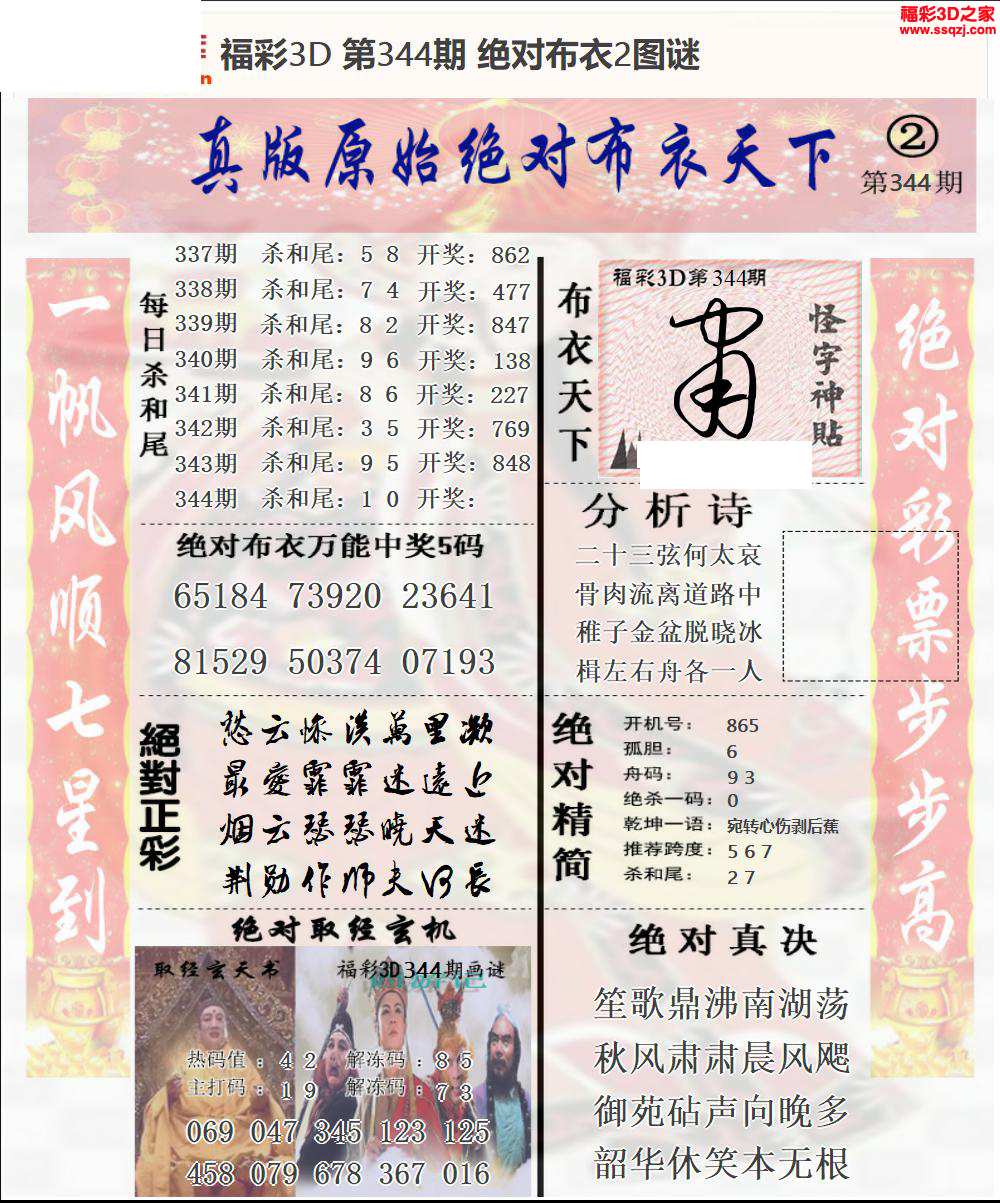 福彩3D之家
www.ssqzj.com
福彩3D 第344期 绝对布衣2图谜
真版原始绝对布衣天下
②
第344期
一帆风顺七星到
每日杀和尾
337期 杀和尾：5 8 开奖：862
338期 杀和尾：7 4 开奖：477
339期 杀和尾：8 2 开奖：847
340期 杀和尾：9 6 开奖：138
341期 杀和尾：8 6 开奖：227
342期 杀和尾：3 5 开奖：769
343期 杀和尾：9 5 开奖：848
344期 杀和尾：1 0 开奖：
绝对布衣万能中奖5码
65184 73920 23641
81529 50374 07193
絕對正彩
愁云惨淡萬里凝
最爱霏霏迷远
烟云瑟瑟晓天迷
荆勋作师夫何长
绝对取经玄机
取经玄天书
福彩3D344期画谜
热码值：4 2 解冻码：8 5
主打码：1 9 解冻码：7 3
069 047 345 123 125
458 079 678 367 016
布衣天下
福彩3D第344期
怪字神貼
分析诗
二十三弦何太哀
骨肉流离道路中
稚子金盆脱晓冰
楫左右舟各一人
绝对精简
开机号：865
孤胆：6
舟码：9 3
绝杀一码：0
乾坤一语：宛转心伤剥后蕉
推荐跨度：5 6 7
杀和尾：2 7
绝对真决
笙歌鼎沸南湖荡
秋风肃肃晨风飔
御苑砧声向晚多
韶华休笑本无根
绝对彩票步步高